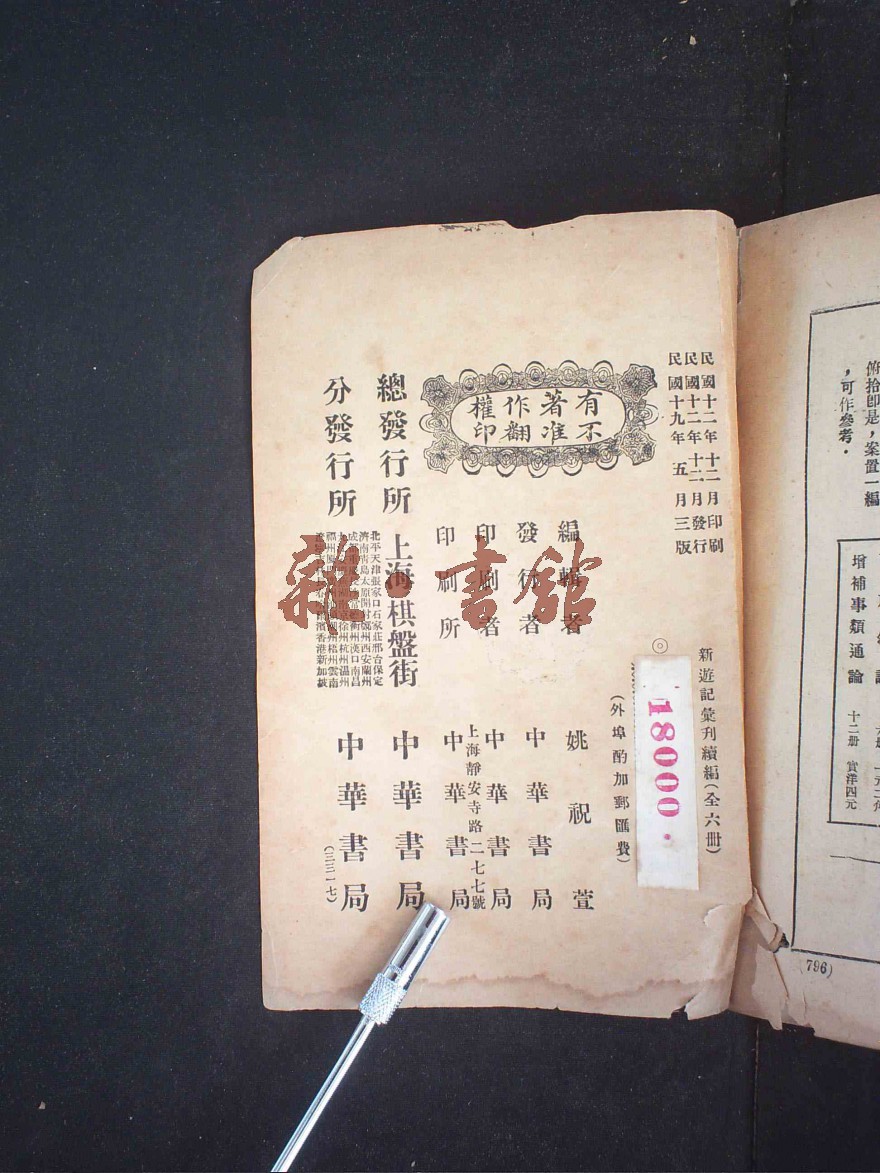 民國十二年十二月印刷
民國十二年十二月發行
民國十九年五月三版
有著作權
不准翻印
新遊記彙刊續編(全六册)
◎
18000.
(外埠酌加郵匯費)
編輯者 姚祝萱
發行者 中華書局
印刷者 中華書局
上海靜安寺路二七七號
印刷所 中華書局
總發行所 上海棋盤街 中華書局
分發行所
北平天津張家口石家莊邢台保定
濟南靑島太原開封鄭州西安蘭州
漢口南昌
徐州杭州溫州
福州
梧州雲南
香港新加坡
中華書局
(三三一七)
雜·書館
俯拾卽是,案置一編
,可作參考.
增補事類通論 十二册 實洋四元
(796)